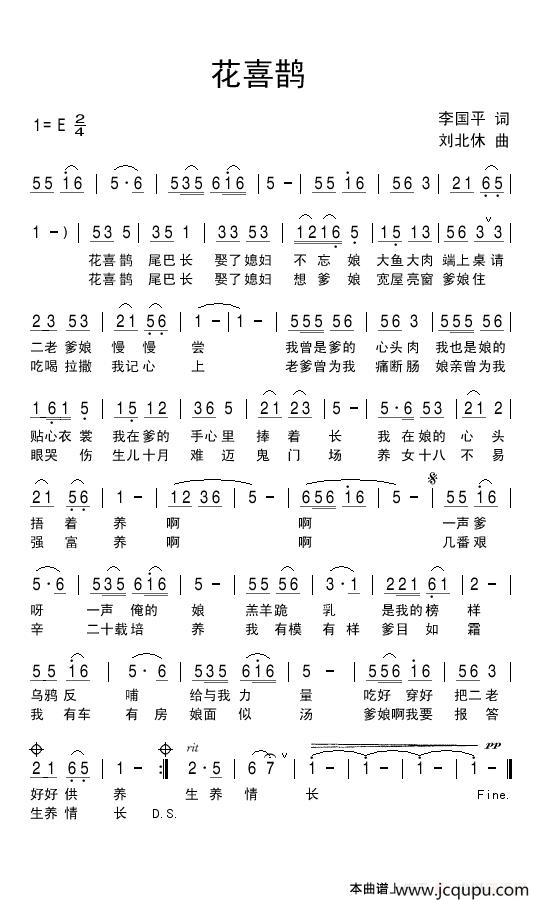 花喜鹊
1=E 2/4
李国平 词
刘北休 曲
5 5 1 6 | 5 · 6 | 5 3 5 6 1 6 | 5 - | 5 5 1 6 | 5 6 3 | 2 1 6 5 |
1 - ) | 5 3 5 | 3 5 1 | 3 3 5 3 | 1 2 1 6 5 | 1 5 1 3 | 5 6 3 3 |
花喜鹊 尾巴长 娶了媳妇 不忘娘 大鱼大肉 端上桌请
花喜鹊 尾巴长 娶了媳妇 想爹娘 宽屋亮窗 爹娘住
2 3 5 3 | 2 1 5 6 | 1 - | 1 - | 5 5 5 5 6 | 5 6 3 | 5 5 5 5 6 |
二老爹娘 慢慢尝 我曾是爹的 心头肉 我也是娘的
吃喝拉撒 我记心上 老爹曾为我 痛断肠 娘亲曾为我
1 6 1 5 | 1 5 1 2 | 3 6 5 | 2 1 2 3 | 5 - | 5 · 6 5 3 | 2 1 2 |
贴心衣裳 我在爹的 手心里 捧着长 我在娘的 心头
眼哭伤 生儿十月 难迈鬼门场 养女十八 不易
2 1 5 6 | 1 - | 1 2 3 6 | 5 - | 6 5 6 1 6 | 5 - | 5 5 1 6 |
捂着养 啊 啊 一声爹
强富养 啊 啊 几番艰
5 · 6 | 5 3 5 6 1 6 | 5 - | 5 5 5 6 | 3 · 1 | 2 2 1 6 1 | 2 - |
呀 一声俺的娘 羔羊跪乳 是我的榜样
辛 二十载培养 我有模有样 爹目如霜
5 5 1 6 | 5 · 6 | 5 3 5 6 1 6 | 5 - | 5 5 6 1 6 | 5 6 3 |
乌鸦反哺 给与我力量 吃好穿好 把二老
我有车有房 娘面似汤 爹娘啊我要 报答
rit pp
2 1 6 5 | 1 - :| 2 · 5 | 6 7 | 1 - | 1 - | 1 - | 1 - ‖
好好供养 生养情长 Fine.
生养情长 D.S.
本曲谱上www.jcqupu.com